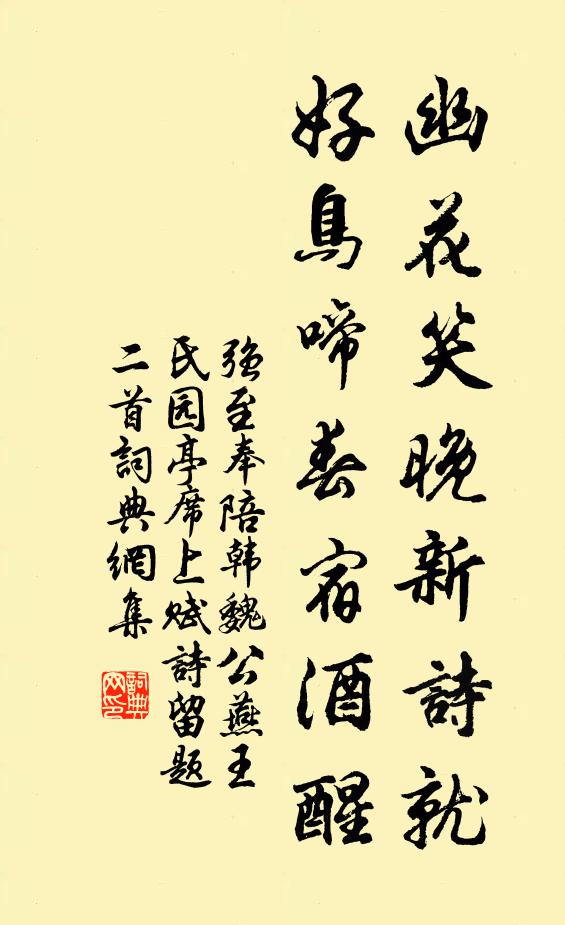 幽花笑晚新詩就
好鳥啼春宿酒醒
强至奉陪韩魏公燕王
民园亭席上赋詩留題
二首詞典網集
詞典
网印